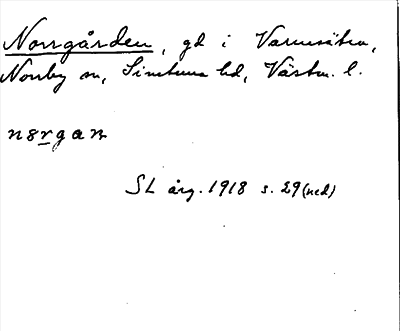 Norrgården, gd i Varmsätra,
Norrby sn, Simtuna hd, Västm. l.
nørgan
SL årg. 1918 s. 29 (ned)